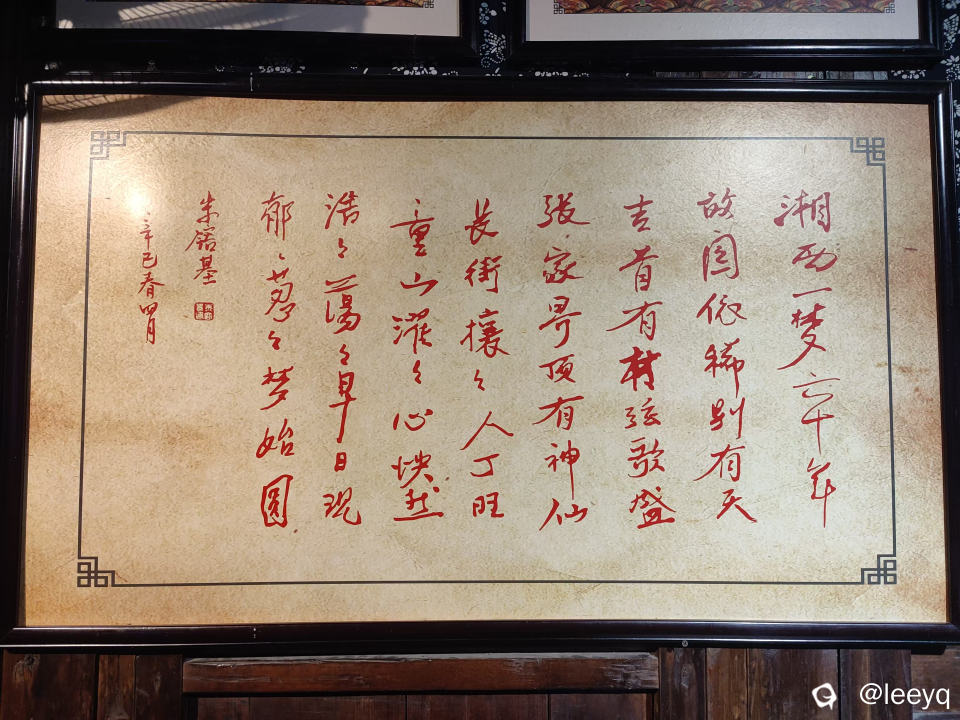 湘西一梦六十年
故园依稀别有天
吉首有材弦歌盛
张家界顶有神仙
长街攘々人丁旺
童山濯々心怏然
浩々荡々早日现
郁々葱々梦始圆
朱镕基
辛巳春四月
@leeyq